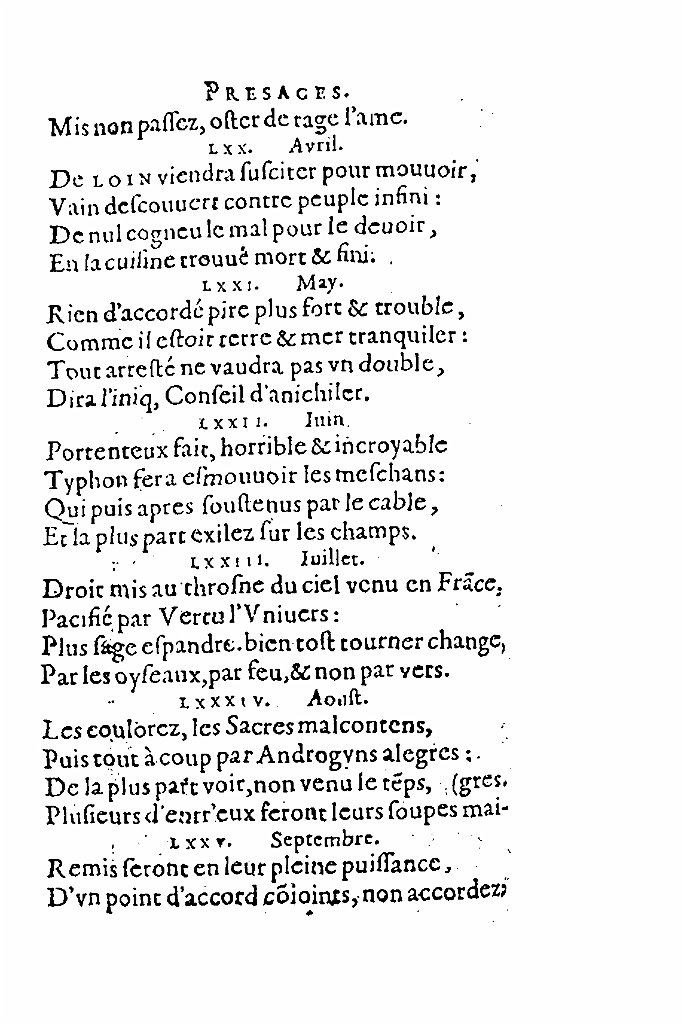 PRESAGES.
Mis non paſſez, oſter de rage l'ame.
LXX. Avril.
De LOIN viendra ſuſciter pour mouuoir,
Vain deſcouuert contre peuple infini :
De nul cogneu le mal pour le deuoir,
En la cuiſine trouué mort & fini.
LXXI. May.
Rien d'accordé pire plus fort & trouble,
Comme il eſtoit terre & mer tranquiler :
Tout arreſté ne vaudra pas vn double,
Dira l'iniq, Conſeil d'anichiler.
LXXII. Iuin.
Portenteux fait, horrible & incroyable
Typhon fera eſmouuoir les meſchans:
Qui puis apres ſouſtenus par le cable,
Et la plus part exilez ſur les champs.
LXXIII. Iuillet.
Droit mis au throſne du ciel venu en Frãce,
Pacifié par Vertu l'Vniuers :
Plus ſage eſpandre. bien toſt tourner change,
Par les oyſeaux, par feu, & non par vers.
LXXXIV. Aouſt.
Les coulorez, les Sacres malcontens,
Puis tout à coup par Androgyns alegres :
De la plus part voir, non venu le tẽps, (gres.
Pluſieurs d'entr'eux feront leurs ſoupes mai-
LXXV. Septembre.
Remis ſeront en leur pleine puiſſance,
D'vn point d'accord cõioints, non accordez;